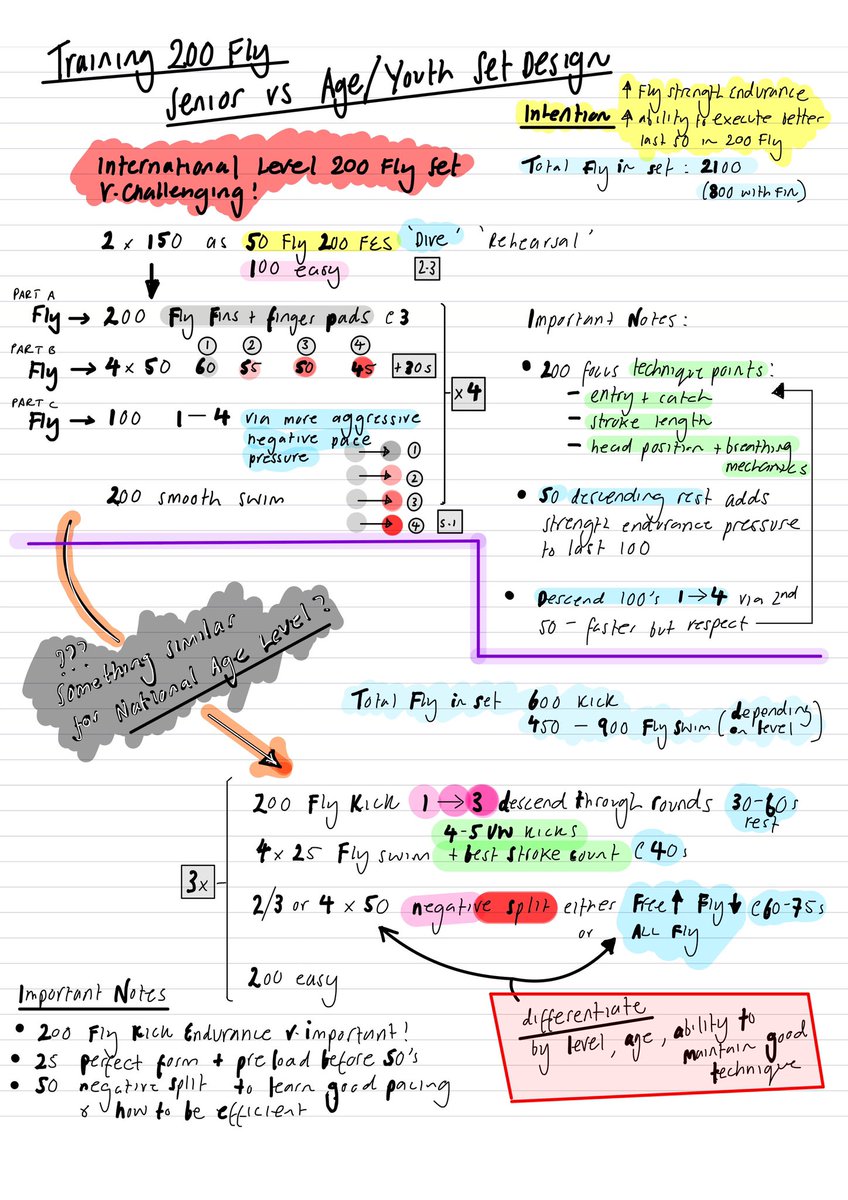 Training 200 Fly
Senior vs Age/Youth Set Design
Intention
↑ Fly strength Endurance
↑ ability to execute better
last 50 in 200 Fly
International Level 200 Fly Set
V.Challenging!
Total Fly in set : 2100
(800 with Fin)
2 x 150 as 50 Fly 200 FES 'Dive' 'Rehearsal'
100 easy
2.3
PART A
Fly → 200 Fly Fins + finger pads @ 3
① ② ③ ④
PART B
Fly → 4 x 50 60 55 50 45 +30s
x 4
PART C
Fly → 100 1 — 4 via more aggressive
negative pace
pressure
→ ①
→ ②
→ ③
→ ④
200 smooth swim
5.1
Important Notes:
• 200 focus technique points:
- entry + catch
- stroke length
- head position + breathing
mechanics
• 50 descending rest adds
strength endurance pressure
to last 100
• Descend 100's 1→4 via 2nd
50 - faster but respect
???
Something similar
for National Age Level?
Total Fly in set 600 kick
450 - 900 Fly swim (depending
on level)
3x
200 Fly Kick 1→3 descend through rounds 30-60s
rest
4-5 UW Kicks
4 x 25 Fly swim + best stroke count @ 40s
2/3 or 4 x 50 negative split either Free↑ Fly↓ @60-75s
or ALL Fly
200 easy
Important Notes
• 200 Fly Kick Endurance v.important!
• 25 perfect form + preload before 50's
• 50 negative split to learn good pacing
& how to be efficient
differentiate
by level, age, ability to
maintain good
technique